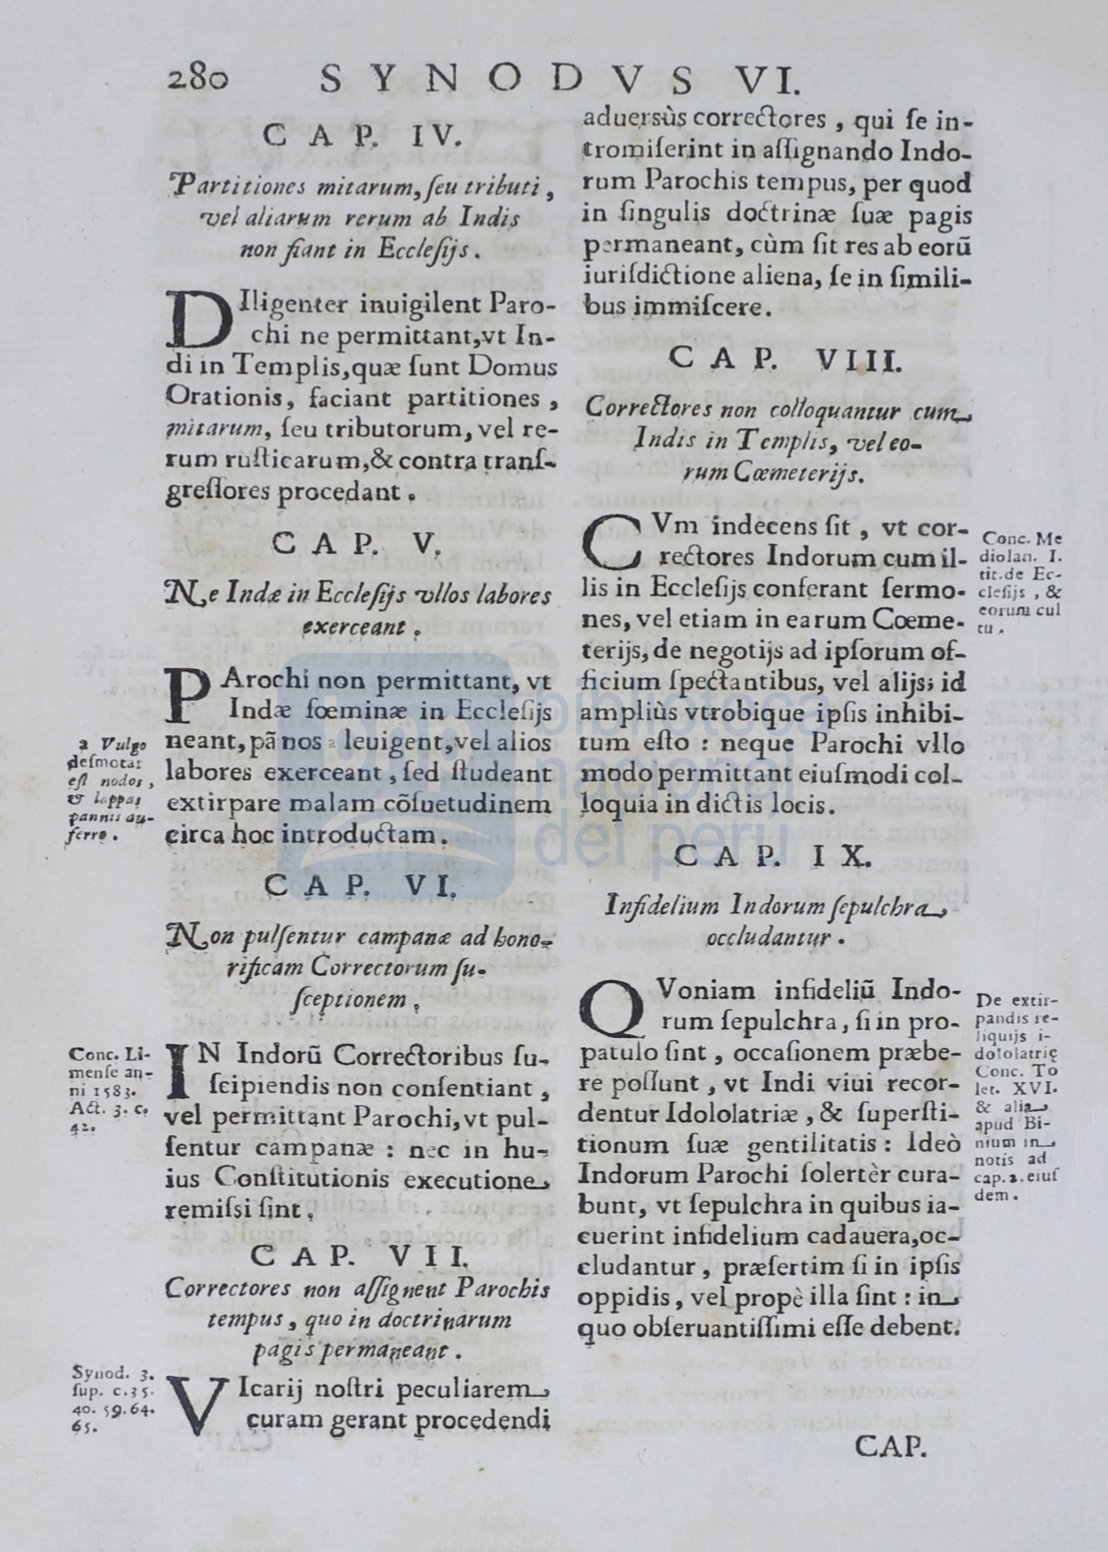 280 SYNODVS VI.
CAP. IV.
Partitiones mitarum, ſeu tributi,
vel aliarum rerum ab Indis
non fiant in Eccleſijs.
DIligenter inuigilent Paro-
chi ne permittant,vt In-
di in Templis,quæ ſunt Domus
Orationis, faciant partitiones,
mitarum, ſeu tributorum, vel re-
rum ruſticarum,& contra tranſ-
greſſores procedant.
CAP. V.
Ne Indæ in Eccleſijs vllos labores
exerceant.
PArochi non permittant, vt
Indæ fœminæ in Eccleſijs
neant, pãnos a leuigent,vel alios
labores exerceant, ſed ſtudeant
extirpare malam cõſuetudinem
circa hoc introductam.
a Vulgo
deſmotar
eſt nodos,
& lappas
pannis au-
ferre.
CAP. VI.
Non pulſentur campanæ ad hono-
rificam Correctorum ſu-
ſceptionem.
IN Indorũ Correctoribus ſu-
ſcipiendis non conſentiant,
vel permittant Parochi, vt pul-
ſentur campanæ : nec in hu-
ius Conſtitutionis executione
remiſsi ſint.
Conc. Li-
menſe an-
ni 1583.
Act. 3. c.
42.
CAP. VII.
Correctores non aſſignent Parochis
tempus, quo in doctrinarum
pagis permaneant.
VIcarij noſtri peculiarem
curam gerant procedendi
Synod. 3.
ſup. c.35.
40. 59.64.
65.
aduersùs correctores, qui ſe in-
tromiſerint in aſſignando Indo-
rum Parochis tempus, per quod
in ſingulis doctrinæ ſuæ pagis
permaneant, cùm ſit res ab eorũ
iuriſdictione aliena, ſe in ſimili-
bus immiſcere.
CAP. VIII.
Correctores non colloquantur cum
Indis in Templis, vel eo-
rum Cœmeterijs.
CVm indecens ſit, vt cor-
rectores Indorum cum il-
lis in Eccleſijs conferant ſermo-
nes, vel etiam in earum Cœme-
terijs, de negotijs ad ipſorum of-
ficium ſpectantibus, vel alijs; id
ampliùs vtrobique ipſis inhibi-
tum eſto : neque Parochi vllo
modo permittant eiuſmodi col-
loquia in dictis locis.
Conc. Me
diolan. I.
tit.de Ec-
cleſijs, &
eorum cul
tu.
CAP. IX.
Infidelium Indorum ſepulchra
occludantur.
QVoniam infideliũ Indo-
rum ſepulchra, ſi in pro-
patulo ſint, occaſionem præbe-
re poſſunt, vt Indi viui recor-
dentur Idololatriæ, & ſuperſti-
tionum ſuæ gentilitatis : Ideò
Indorum Parochi ſolertèr cura-
bunt, vt ſepulchra in quibus ia-
cuerint infidelium cadauera,oc-
cludantur, præſertim ſi in ipſis
oppidis, vel propè illa ſint : in
quo obſeruantiſſimi eſſe debent.
De extir-
pandis re-
liquijs i-
dololatrię
Conc. To
let. XVI.
& alia
apud Bi-
nium in
notis ad
cap.2.eiuſ
dem.
CAP.
biblioteca
nacional
del perú